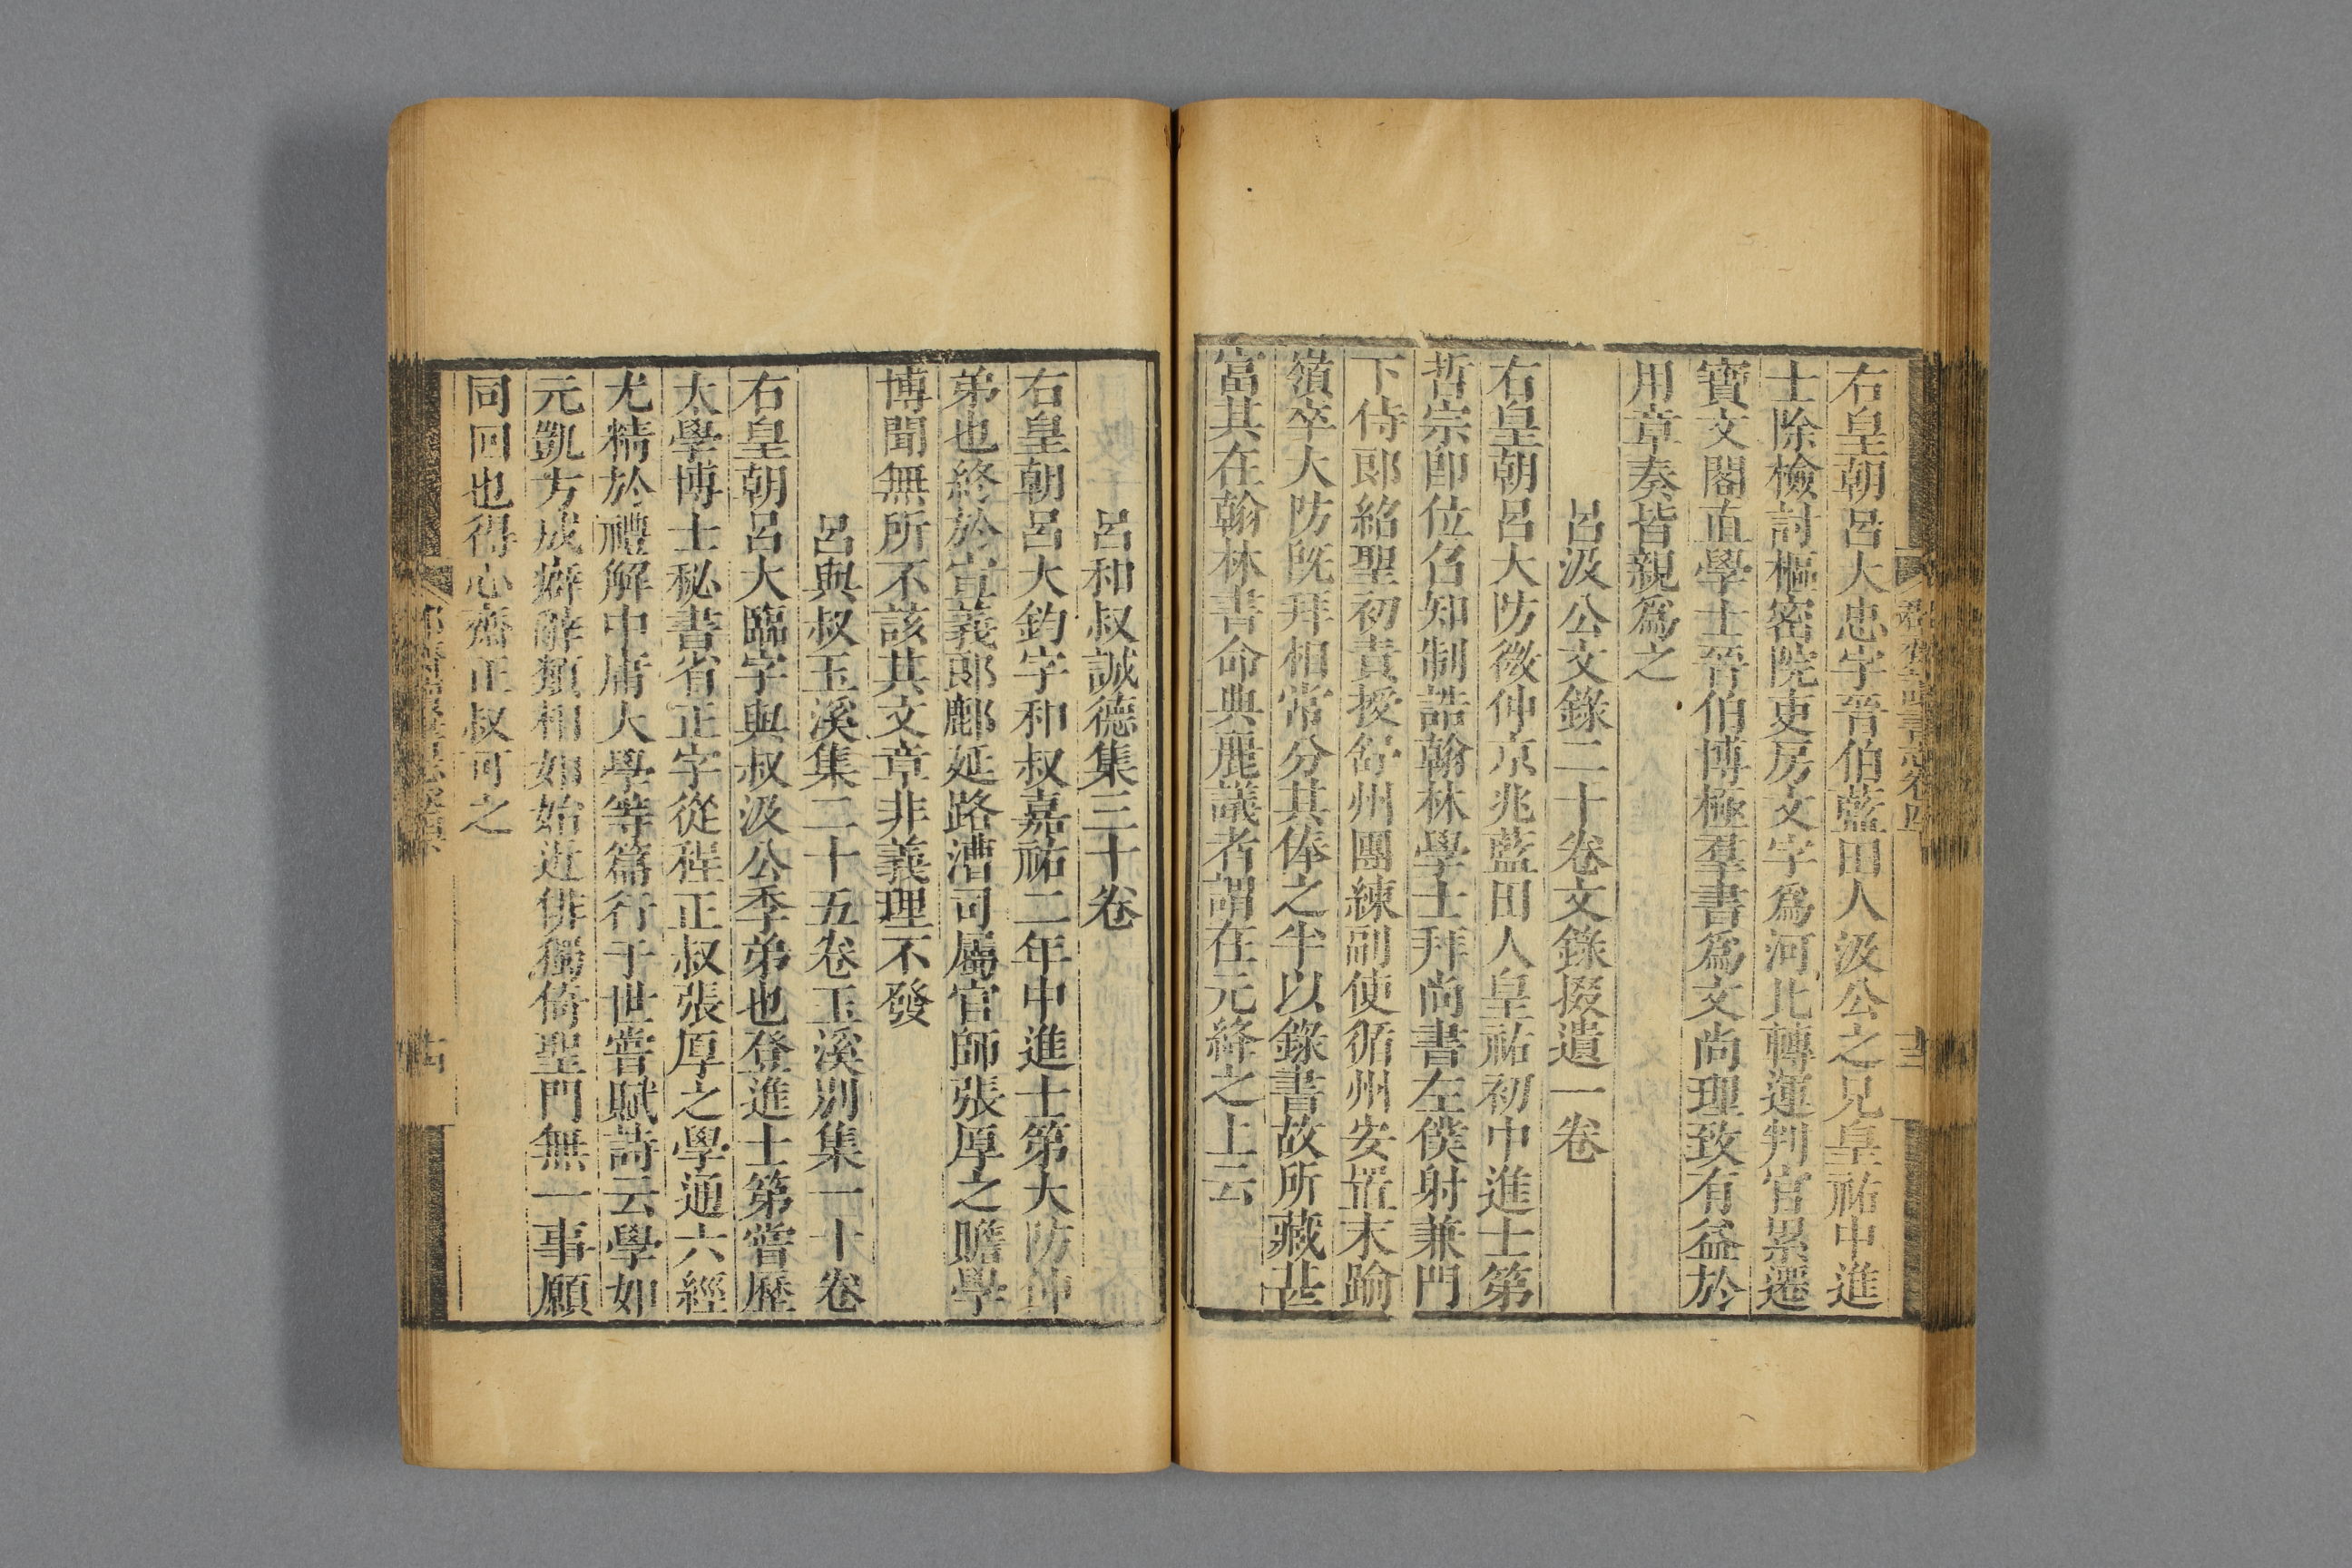 右皇朝呂大忠字晉伯藍田人汲公之兄皇祐中進
士除檢討樞密院吏房文字爲河北轉運判官累遷
寶文閣直學士晉伯博極羣書爲文尚理致有益於
用章奏皆親爲之
呂汲公文錄二十卷文錄掇遺一卷
右皇朝呂大防微仲京兆藍田人皇祐初中進士第
哲宗卽位召知制誥翰林學士拜尚書左僕射兼門
下侍郎紹聖初責授舒州團練副使循州安置未踰
嶺卒大防旣拜相常分其俸之半以錄書故所藏甚
富其在翰林書命典麗議者謂在元絳之上云
呂和叔誠德集三十卷
右皇朝呂大鈞字和叔嘉祐二年中進士第大防仲
弟也終於宣義郎鄜延路漕司屬官師張厚之贍學
博聞無所不該其文章非義理不發
呂與叔玉溪集二十五卷玉溪別集一十卷
右皇朝呂大臨字與叔汲公季弟也登進士第嘗歷
太學博士秘書省正字從程正叔張厚之學通六經
尤精於禮解中庸大學等篇行于世嘗賦詩云學如
元凱方成癖辭類相如始近俳獨倚聖門無一事願
同回也得心齋正叔可之